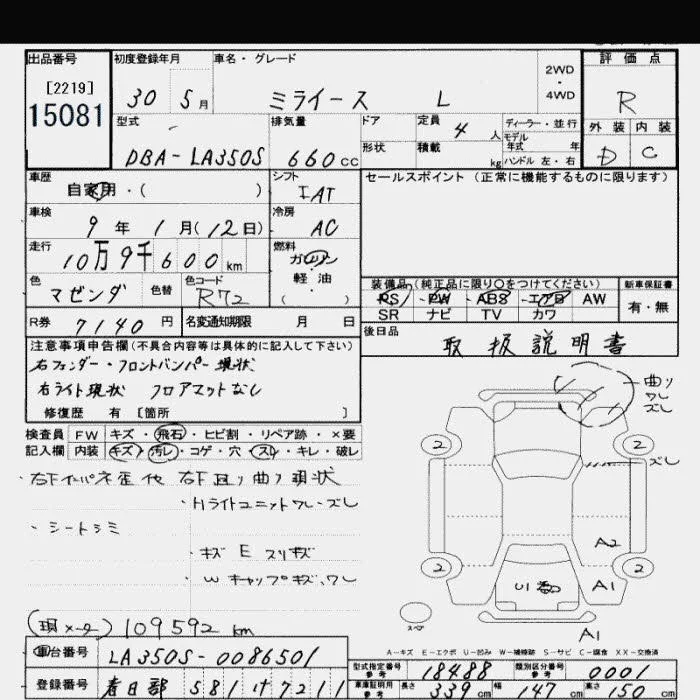 出品番号 初度登録年月 車名・グレード 評価点
[2219] 2WD
・
15081 30 5月 ミライース L 4WD R
型式 排気量 ドア 定員 ディーラー・並行 外装 内装
4人 モデル
年式 年
DBA-LA350S 660cc 形状 積載 kg ハンドル 左・右 D C
車歴 シフト セールスポイント(正常に機能するものに限ります)
自家用・( ) IAT
車検 冷房
9年 1月(12日) AC
走行 燃料
10万9千600km ガソリン
・
軽油
色 色替 色コード 装備品(純正品に限り○をつけてください) 新車保証書
マゼンダ R72 ( ) PS・PW・ABS・エアB・AW 有・無
SR ナビ TV カワ
R券 7140円 名変通知期限 月 日 後日品
取扱説明書
注意事項申告欄(不具合内容等は具体的に記入して下さい)
右フェンダー・フロントバンパー現状
右ライト現状 フロアマットなし
修復歴 有[箇所 ]
曲り
ワレ
ズレ
検査員 FW キズ・飛石・ヒビ割・リペア跡・×要
記入欄 内装 キズ・汚レ・コゲ・穴・スレ・キレ・破レ
2 2
ズレ
・右Fインパネ歪他 右F廻り曲り現状
・Hライトユニットワレ・ズレ
・シートシミ
A2
・キズ E スリキズ
2 2
・Wキャップキズ、ワレ
U1 A1
スペア
(現メータ) 109592km
A1
A-キズ E-エクボ U-凹み W-補修跡 S-サビ C-腐食 XX-交換済
車台番号 LA350S-0086501 型式指定番号
参考 18488 類別区分番号
参考 0001
登録番号 春日部 581 け 7211 車庫証明用
参考 長さ 339cm 幅 147cm 高さ 150cm